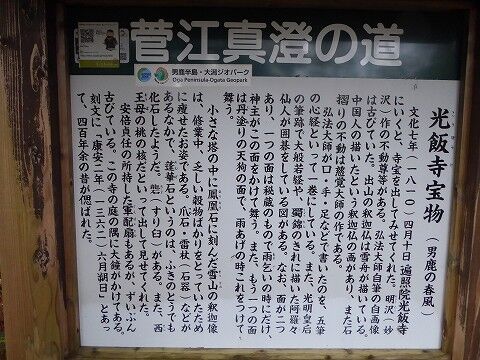 菅江真澄の道
男鹿半島・大潟ジオパーク
Oga Peninsula-Ogata Geopark
光飯寺宝物（男鹿の春風）
文化七年（一八一〇）四月十日 遍照院光飯寺
にいくと、寺宝を出してみせてくれた。明沢（妙
沢）作の不動尊等がある。弘法大師自筆の自高像
は古びていた。出山の釈迦仏は雪舟が描いている。
中国人の描いたという釈迦仏の画があり、また石
摺りの不動は慈覚大師の作である。
弘法大師が口・手・足などで書いたのを、五筆
の心経といって一巻にしている。また、光明皇后
の筆跡で大般若経や、蜀錦のきれに描いた阿羅々
仙人が囲碁をしている図がある。なお、面が二つ
あり、一つの面は秘蔵のもので雨乞いの時にだけ、
神主がこの面をかけて舞う。また、もう一つの面
は丹塗りの天狗の面で、雨あげの時これをつけて
舞う。
小さな塔の中に鳳凰石に刻んだ雪山の釈迦像
は、修業中、乏しい穀物ばかりをとっていたため
に瘦せたお姿である。爪石・雷杖（石器）などが
あるなかで、蓮華石というのは、ふきのとうでも
化石したようだ。
（すり臼）がある。また、西
王母の桃の核だといって出して見せてくれた。
安倍貞任の所持した軍配扇もあるが、ずいぶん
古びている。この寺の庭の隅に大鐘がかけてある。
刻文に「康安二年（一三六二）六月朔日」とあっ
て、四百年余の昔が偲ばれた。